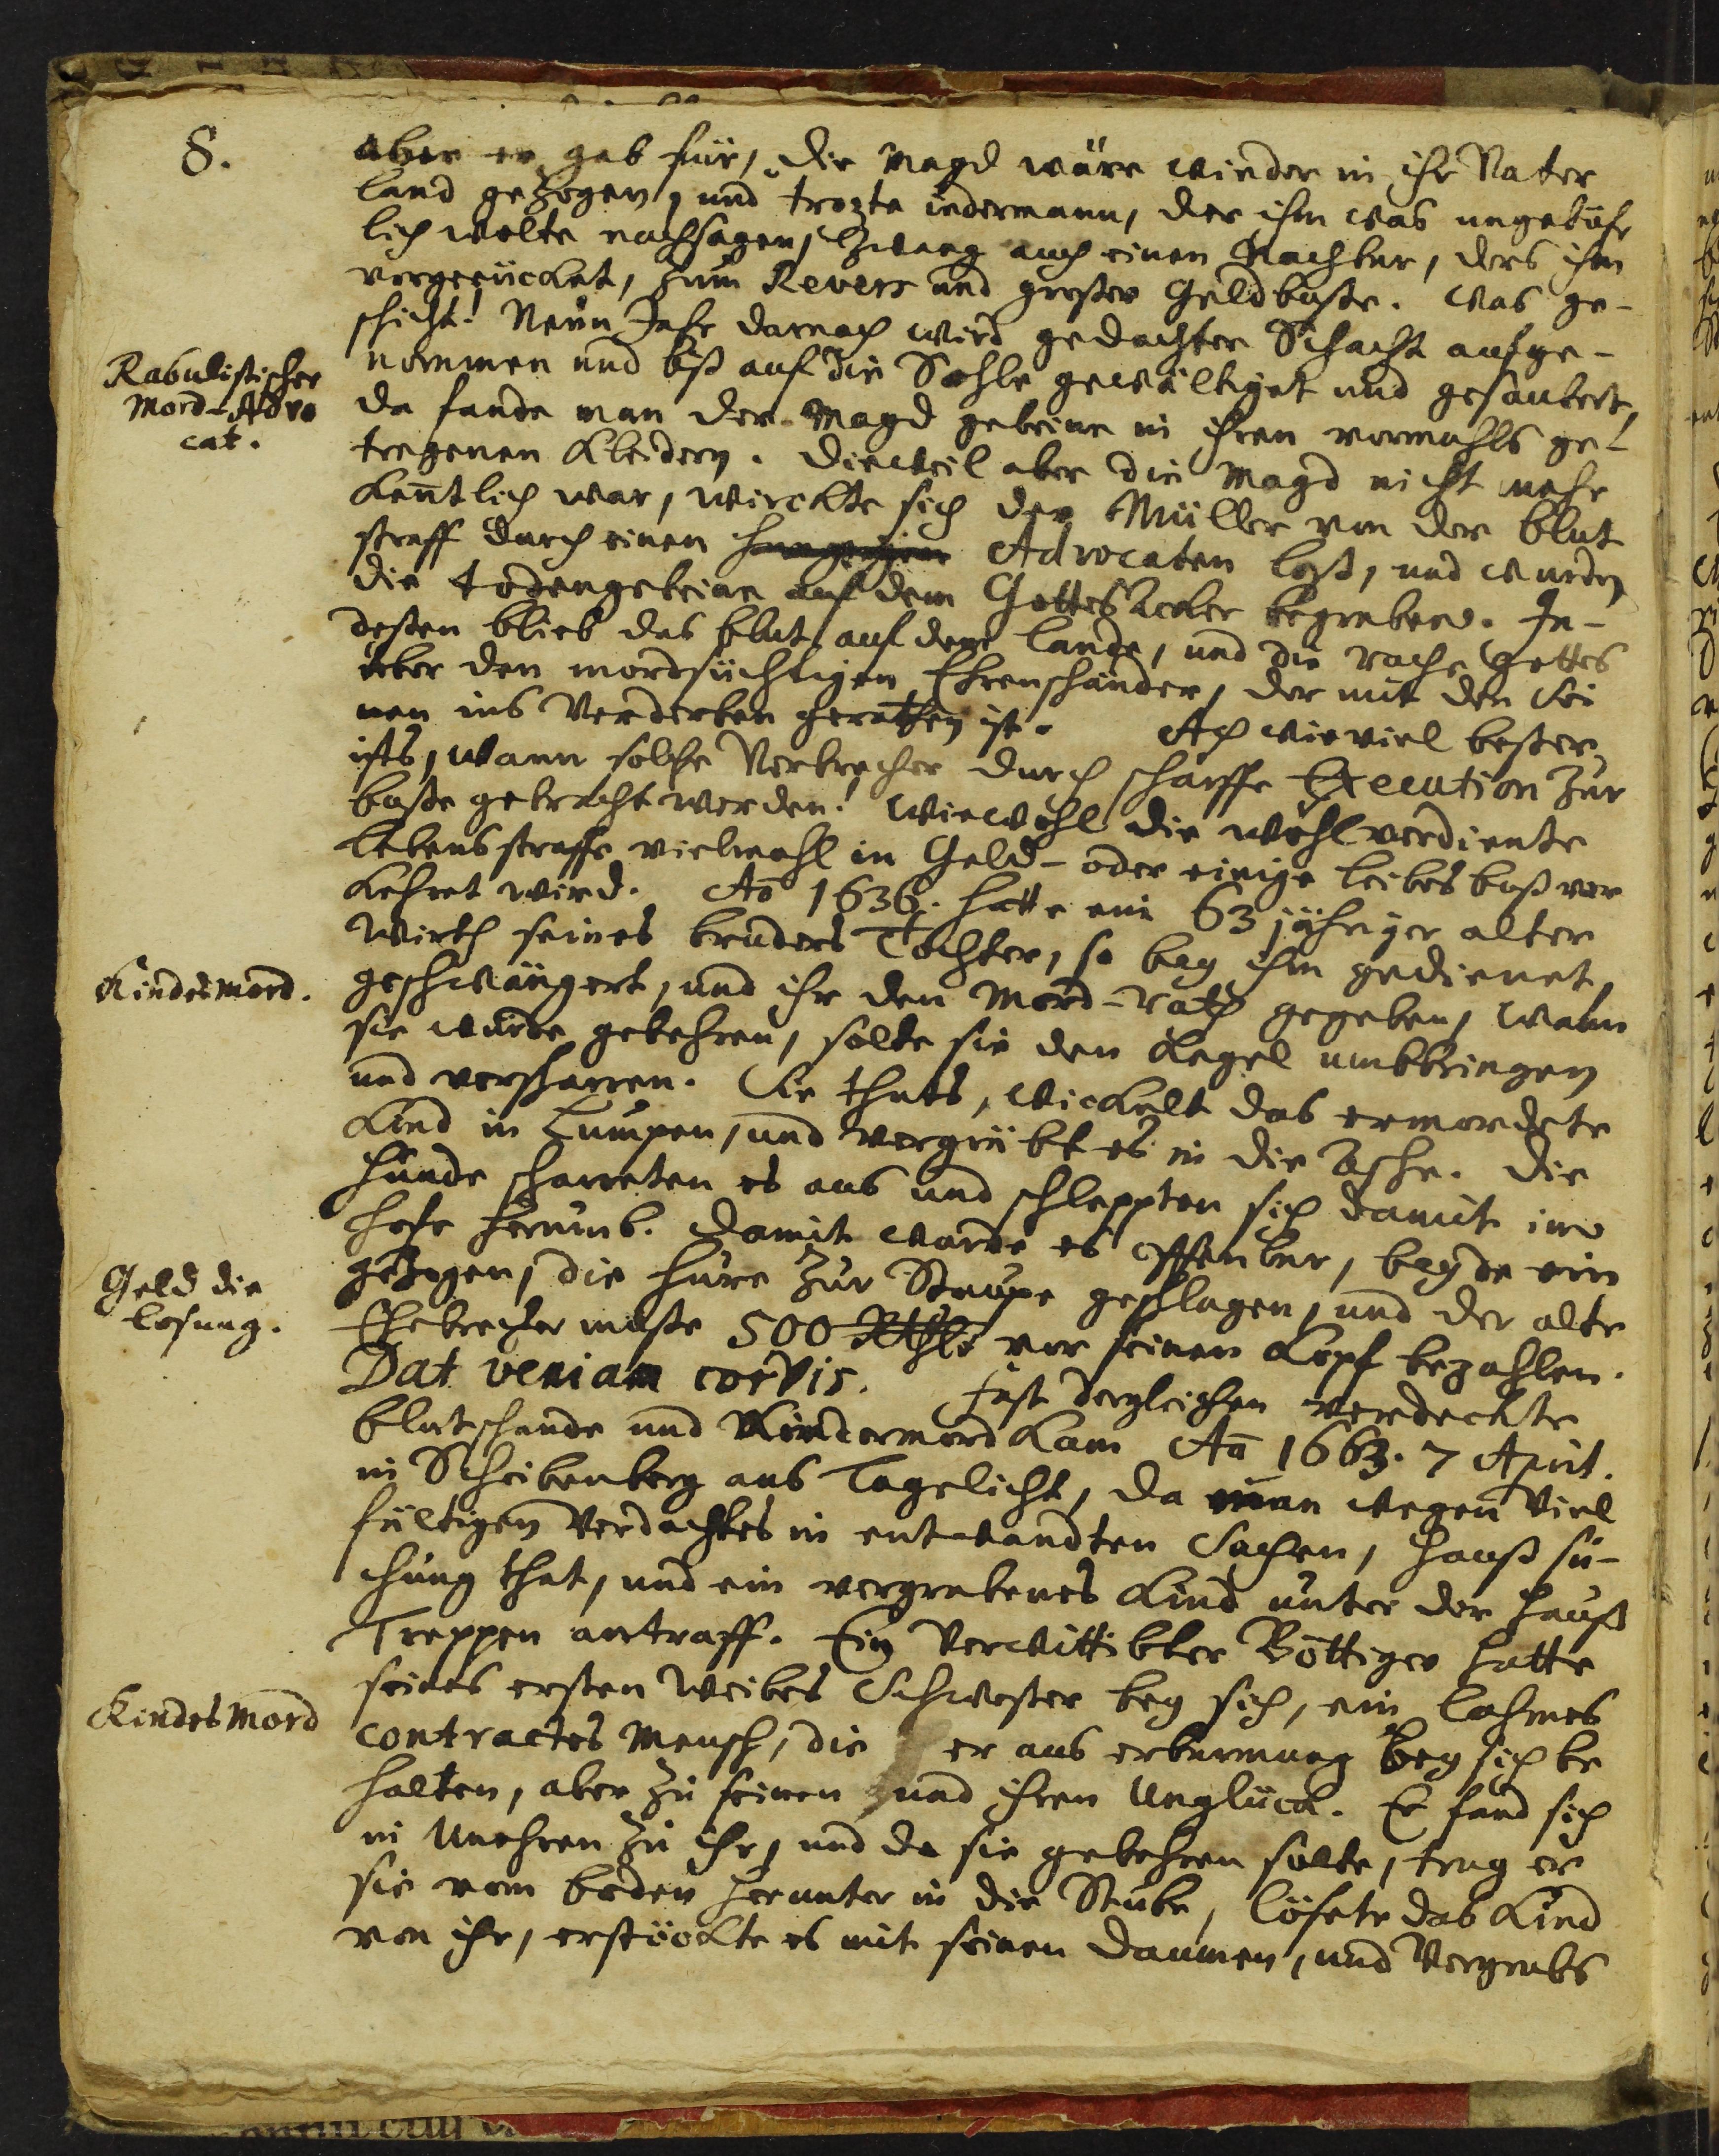 8.
aber er gab für, die Magd wäre wieder in ihr Vater
land gezogen, und trozte iedermann, der ihm was ungebühr
lich wolte nachsagen, zwang auch einen Nachbar, ders ihm
vorgerücket, zum Revers und großer Geldbuße. Was ge-
schicht! Neun Jahr darnach wird gedachter Schacht aufge-
Rabulistischer
Mord-Advo
cat.
nommen und biß auf die Sohle gewältiget und gesäubert,
da fande man der Magd gebeine in ihren vormahls ge-
tragenen Kleidern. Dieweil aber die Magd nicht mehr
kentlich war, wirckte sich der Müller von der blut
straff durch einen Advocaten loß, und wurden
die todengebeine auf dem GottesAcker begraben. In-
deßen blieb das blut auf dem Lande, und die rache Gottes
über den mordsüchtigen Ehrenschänder, der mit den sei
nen ins Verderben gerathen ist. Ach wieviel beßer
ists, wann solche Verbrecher durch scharffe Execution zur
buße gebracht werden! Wiewohl die wohlverdiente
Lebensstraffe vielmahl in Geld- oder einige leibes buß ver
kehret wird. Ao 1636. hatte ein 63 jähriger alter
Wirth seines bruders Tochter, so bey ihm gedienet,
Kindesmord.
geschwängert, und ihr den Mord-rath gegeben, wann
sie würde gebehren, solte sie den Kegel umbbringen
und verscharren. Sie thats, wickelt das ermordete
Kind in Lumpen, und vergräbt es in die Asche. Die
Hunde scharreten es aus und schleppten sich damit im
Hofe herumb. Damit wurde es offenbar, beyde ein
Geld die
losung.
gezogen, die Hure zur Staupe geschlagen, und der alte
Ehebrecher muste 500 Rthlr vor seinen Kopf bezahlen.
Dat veniam corvis. Fast dergleichen verdeckte
blutschande und Kindermord kam Ao 1663. 7 April.
in Scheibenberg ans Tagelicht, da man wegen Viel
fältigen Verdachtes in entwandten Sachen, Hauß su-
chung that, und ein vergrabenes Kind unter der Hauß
Treppen antraff. Ein Verwittibter Böttiger hatte
seines ersten Weibes Schwester bey sich, ein lahmes
Kindes Mord
contractes Mensch, die er aus erbarmung bey sich be
halten, aber zu seinen und ihren Unglück. Er fand sich
in Unehren zu ihr, und da sie gebehren solte, trug er
sie vom boden herunter in die Stube, lösete das Kind
von ihr, ersteckte es mit seinen Daumen, und Vergrabs